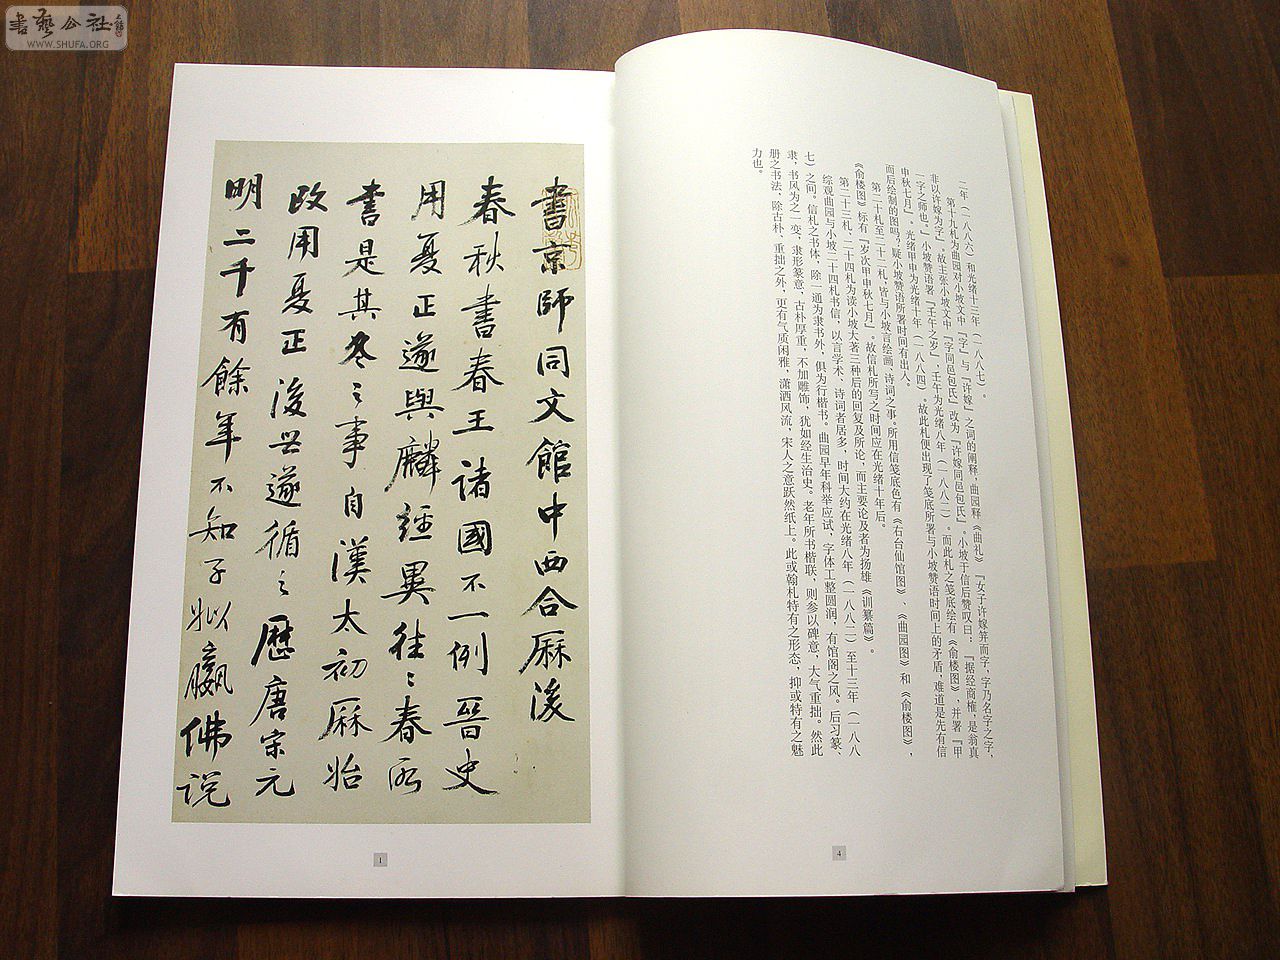 書藝公社
WWW.SHUFA.ORG
二年（一八八六）和光绪十三年（一八八七）。
第十九札为曲园对小坡文中『字』与『许嫁』之词的阐释，曲园释《曲礼》『女子许嫁笄而字，字乃名字之字，
非以许嫁为字』，故主张小坡文中『字同邑包氏』改为『许嫁同邑包氏』。小坡于信后赞叹曰：『据经商榷，是翁真
一字之师也』。小坡赞语署『壬午之岁』，壬午为光绪八年（一八八二）。而此札之笺底绘有《俞楼图》，并署『甲
申秋七月』。光绪甲申为光绪十年（一八八四），故此札便出现了笺底所署与小坡赞语时间上的矛盾，难道是先有信
而后绘制的图吗？疑小坡赞语所署时间有出入。
第二十札至二十二札，皆与小坡言绘画、诗词之事。所用信笺底色有《右台仙馆图》、《曲园图》和《俞楼图》，
《俞楼图》标有『岁次甲申秋七月』。故信札所写之时间应在光绪十年后。
第二十三札、二十四札为读小坡大著三种后的回复及所论，而主要论及者为扬雄《训纂篇》。
综观曲园与小坡二十四札书信，以言学术、诗词者居多，时间大约在光绪八年（一八八二）至十三年（一八八
七）之间。信札之书体，除一通为隶书外，俱为行楷书。曲园早年科举应试，字体工整圆润，有馆阁之风。后习篆、
隶，书风为之一变，隶形篆意，古朴厚重，不加雕饰，犹如经生治史。老年所书楷联，则参以碑意，大气重拙。然此
册之书法，除古朴、重拙之外，更有气质闲雅，潇洒风流，宋人之意跃然纸上。此或翰札特有之形态，抑或特有之魅
力也。
4
書京師同文館中西合厤後
春秋書春王諸國不一例晉史
用夏正遂與麟經異往〻春秋
書是其冬之事自漢太初厤始
改用夏正後世遂循之歷唐宋元
明二千有餘年不知子姒嬴佛說
1